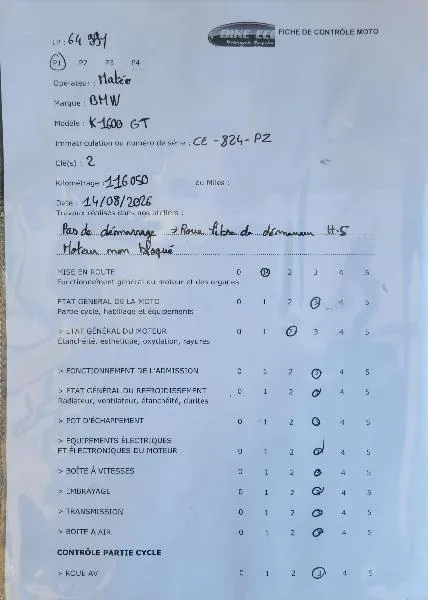 LP : 64 991
BIKE ECO
FICHE DE CONTRÔLE MOTO
P1 P2 P3 P4
Opérateur : Matéo
Marque : BMW
Modèle : K1600 GT
Immatriculation ou numéro de série : CE-824-PZ
Clé(s) : 2
Kilométrage : 116050 ou Miles :
Date : 14/08/2026
Travaux réalisés dans nos ateliers :
Pas de démarrage → Roue libre de démarreur H-S
Moteur non bloqué
MISE EN ROUTE 0 1 2 3 4 5
Fonctionnement général du moteur et des organes
ETAT GENERAL DE LA MOTO 0 1 2 3 4 5
Partie cycle, habillage et équipements
> ETAT GÉNÉRAL DU MOTEUR 0 1 2 3 4 5
Etanchéité, esthétique, oxydation, rayures
> FONCTIONNEMENT DE L'ADMISSION 0 1 2 3 4 5
> ETAT GÉNÉRAL DU REFROIDISSEMENT 0 1 2 3 4 5
Radiateur, ventilateur, étanchéité, durites
> POT D'ÉCHAPPEMENT 0 1 2 3 4 5
> EQUIPEMENTS ÉLECTRIQUES
ET ÉLECTRONIQUES DU MOTEUR 0 1 2 3 4 5
> BOÎTE À VITESSES 0 1 2 3 4 5
> EMBRAYAGE 0 1 2 3 4 5
> TRANSMISSION 0 1 2 3 4 5
> BOITE A AIR 0 1 2 3 4 5
CONTRÔLE PARTIE CYCLE
> ROUE AV 0 1 2 3 4 5